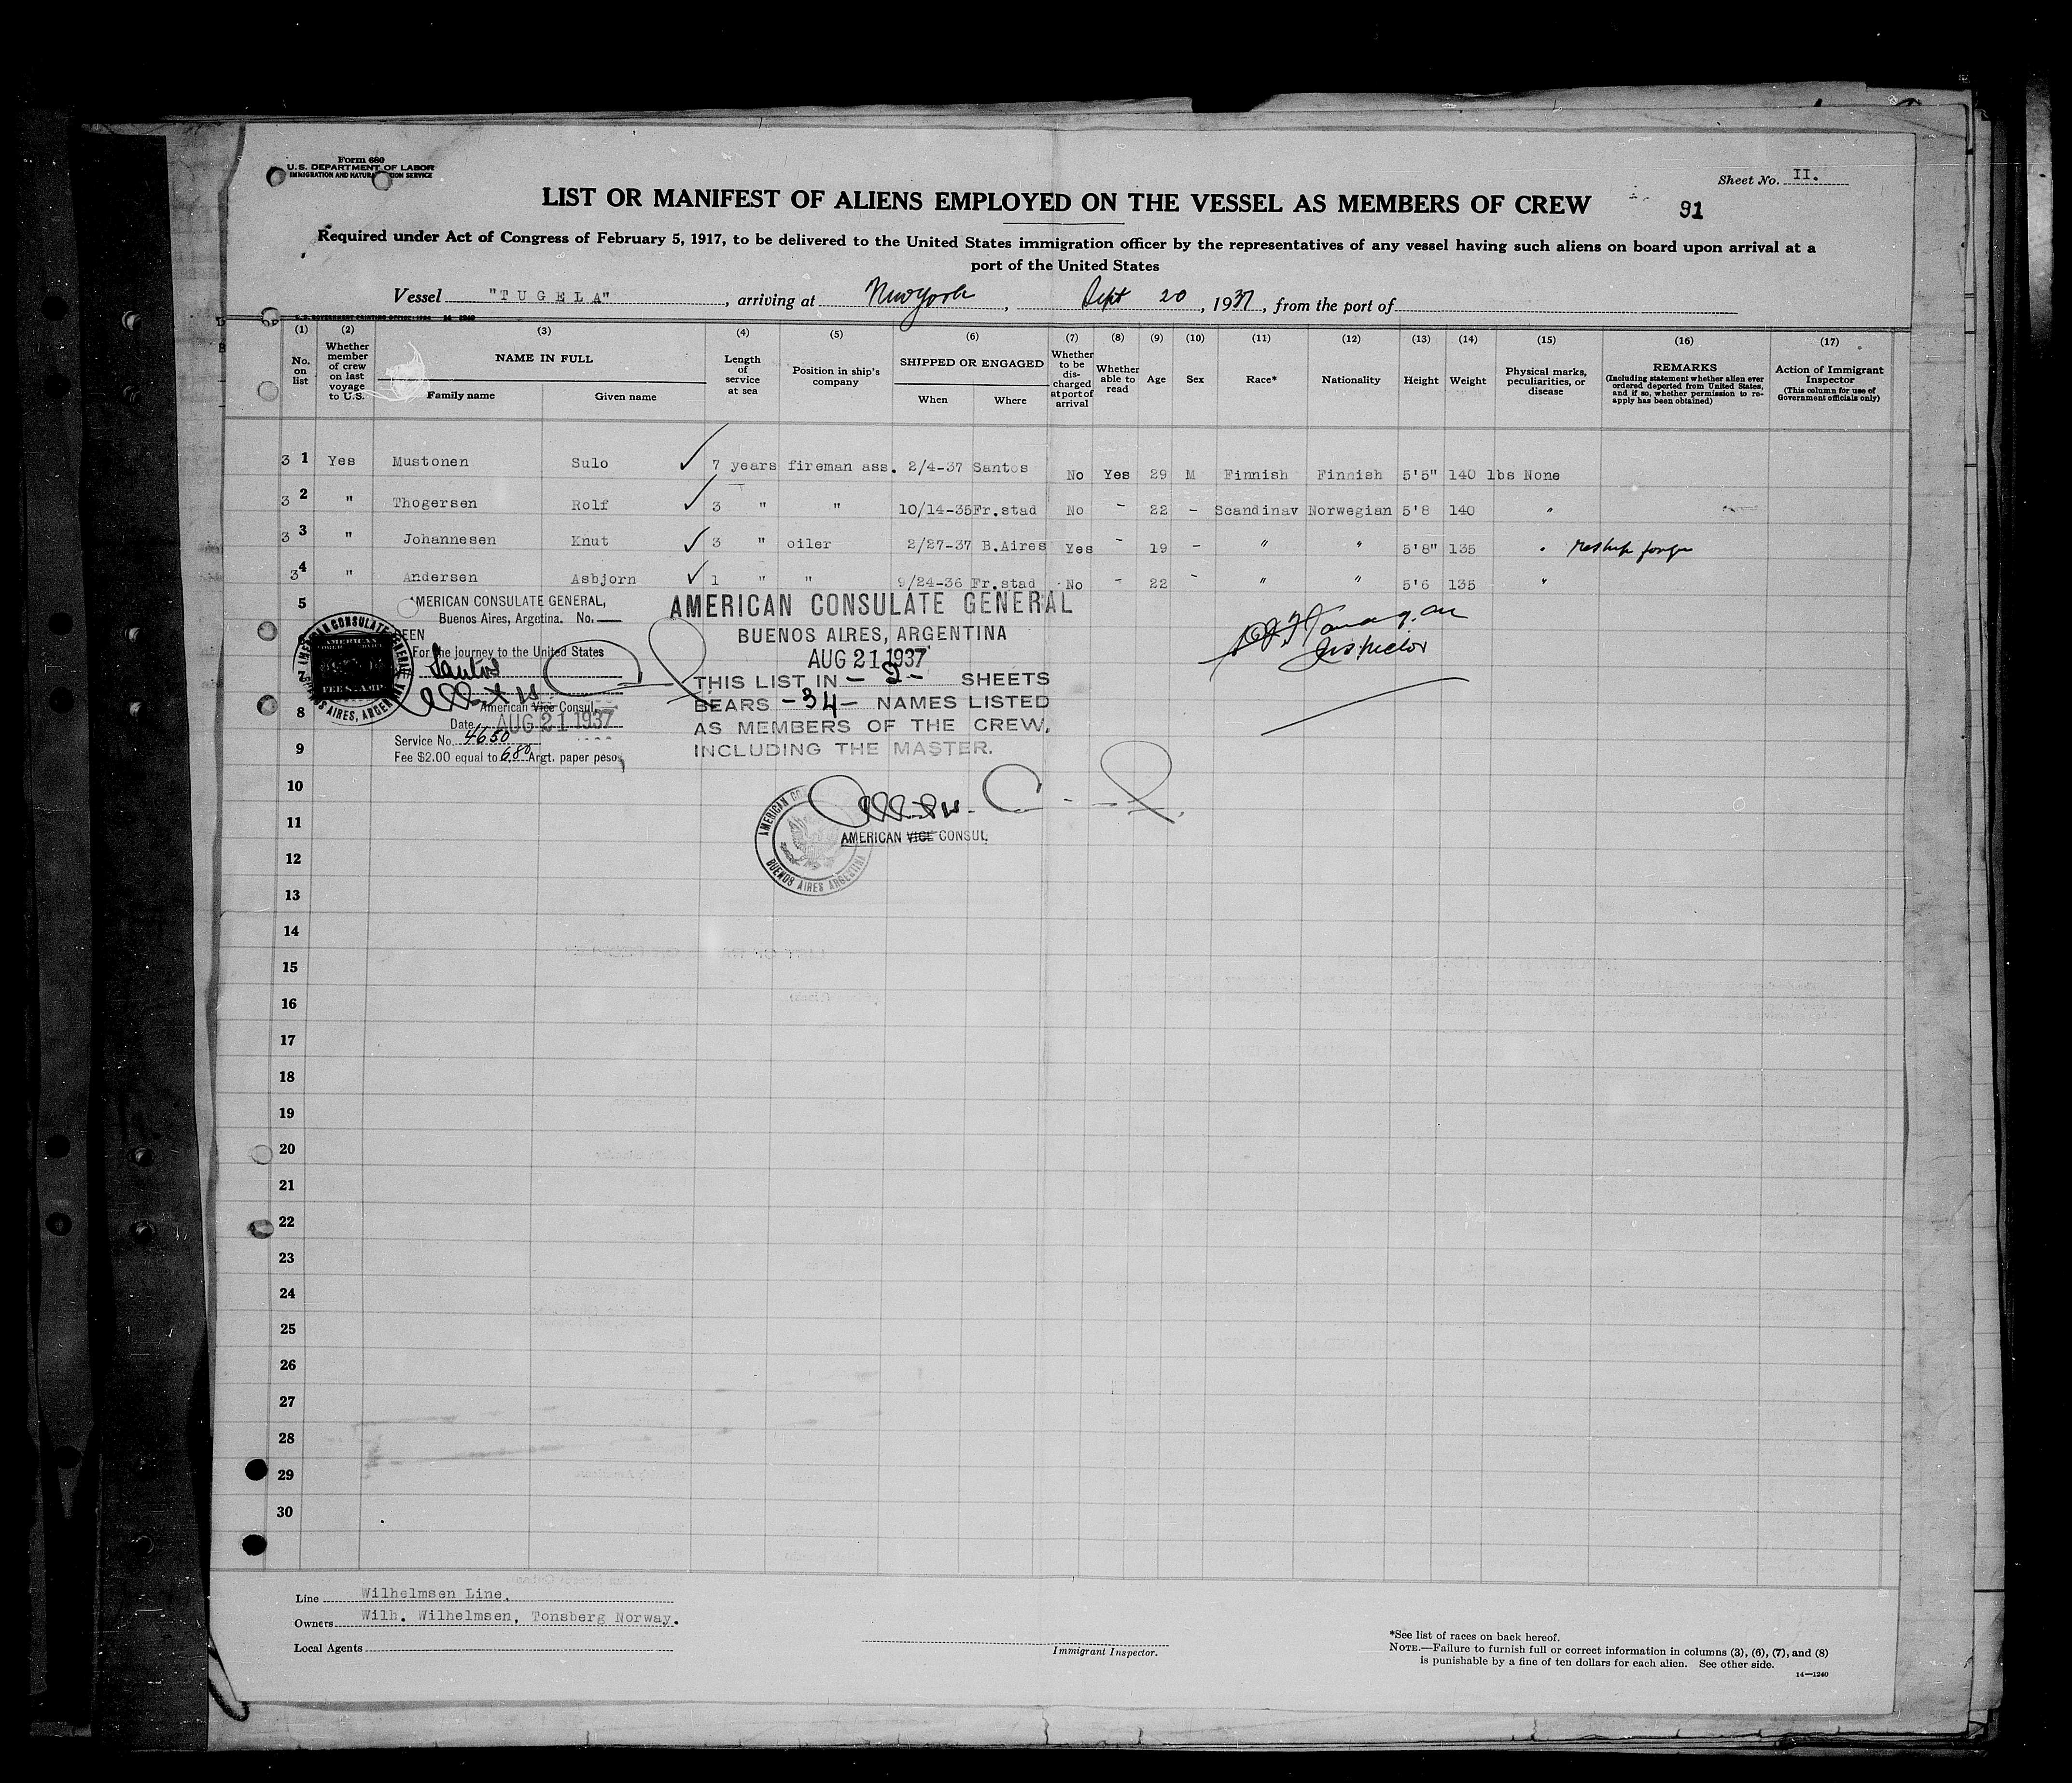 Form 680
U.S. DEPARTMENT OF LABOR
IMMIGRATION AND NATURALIZATION SERVICE
Sheet No. II.
LIST OR MANIFEST OF ALIENS EMPLOYED ON THE VESSEL AS MEMBERS OF CREW
91
Required under Act of Congress of February 5, 1917, to be delivered to the United States immigration officer by the representatives of any vessel having such aliens on board upon arrival at a
port of the United States
Vessel "TUGELA", arriving at New York, Sept 20, 1937, from the port of
U.S. GOVERNMENT PRINTING OFFICE: 1934 14—1240
(1) (2) (3) (4) (5) (6) (7) (8) (9) (10) (11) (12) (13) (14) (15) (16) (17)
No. on list
Whether member of crew on last voyage to U.S.
NAME IN FULL
Family name
Given name
Length of service at sea
Position in ship's company
SHIPPED OR ENGAGED
When
Where
Whether to be discharged at port of arrival
Whether able to read
Age
Sex
Race*
Nationality
Height
Weight
Physical marks, peculiarities, or disease
REMARKS
(Including statement whether alien ever ordered deported from United States, and if so, whether permission to reapply has been obtained)
Action of Immigrant Inspector
(This column for use of Government officials only)
3 1 Yes Mustonen Sulo 7 years fireman ass. 2/4-37 Santos No Yes 29 M Finnish Finnish 5'5" 140 lbs None
3 2 " Thogersen Rolf 3 " " 10/14-35 Fr.stad No - 22 - Scandinav Norwegian 5'8 140 "
3 3 " Johannesen Knut 3 " oiler 2/27-37 B.Aires Yes - 19 - " " 5'8" 135 " reship foreign
3 4 " Andersen Asbjorn 1 " " 9/24-36 Fr.stad No - 22 - " " 5'6 135 "
5
6
7
8
9
10
11
12
13
14
15
16
17
18
19
20
21
22
23
24
25
26
27
28
29
30
AMERICAN CONSULATE GENERAL,
Buenos Aires, Argetina. No.
SEEN
For the journey to the United States
Santos
American Vice Consul.
Date AUG 21 1937
Service No. 4650
Fee $2.00 equal to 6.80 Argt. paper pesos
AMERICAN CONSULATE GENERAL
BUENOS AIRES, ARGENTINA
AUG 21 1937
THIS LIST IN - 2 - SHEETS
BEARS -34- NAMES LISTED
AS MEMBERS OF THE CREW,
INCLUDING THE MASTER.
AMERICAN VICE CONSUL
BUENOS AIRES ARGENTINA
Inspector
Line Wilhelmsen Line.
Owners Wilh. Wilhelmsen, Tonsberg Norway.
Local Agents
Immigrant Inspector.
*See list of races on back hereof.
NOTE.—Failure to furnish full or correct information in columns (3), (6), (7), and (8)
is punishable by a fine of ten dollars for each alien. See other side.
14—1240